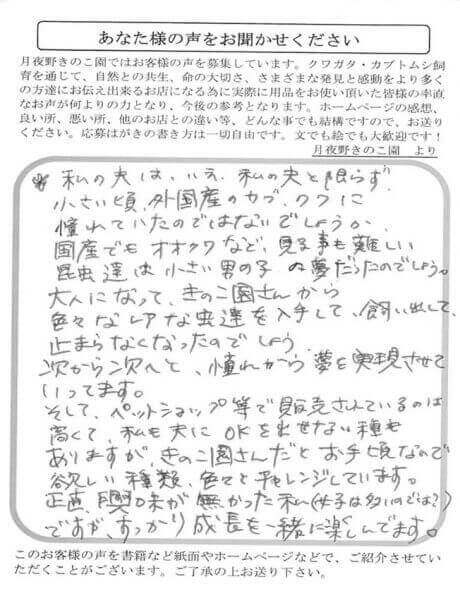 あなた様の声をお聞かせください
月夜野きのこ園ではお客様の声を募集しています。クワガタ・カブトムシ飼
育を通じて、自然との共生、命の大切さ、さまざまな発見と感動をより多く
の方達にお伝え出来るお店になる為に実際に用品をお使い頂いた皆様の率直
なお声が何よりの力となり、今後の参考となります。ホームページの感想、
良い所、悪い所、他のお店との違い等、どんな事でも結構ですので、お送り
ください。応募はがきの書き方は一切自由です。文でも絵でも大歓迎です!
月夜野きのこ園 より
私の夫は、いえ、私の夫と限らず
小さい頃、外国産のカブ、クワに
憧れていたのではないでしょうか。
国産でもオオクワなど、見る事も難しい
昆虫達は小さい男の子の夢だったのでしょう。
大人になって、きのこ園さんから
色々なレアな虫達を入手して、飼い出して、
止まらなくなったのでしょう
次から次へと、憧れから夢を実現させて
いってます。
そして、ペットショップ等で販売されているのは
高くて、私も夫にOKを出せない種も
ありますが、きのこ園さんだとお手頃なので
欲しい種類、色々とチャレンジしています。
正直、興味が無かった私(女子は多いのでは?)
ですが、すっかり成長を一緒に楽しんでます。
このお客様の声を書籍など紙面やホームページなどで、ご紹介させてい
ただくことがございます。ご了承の上お送り下さい。